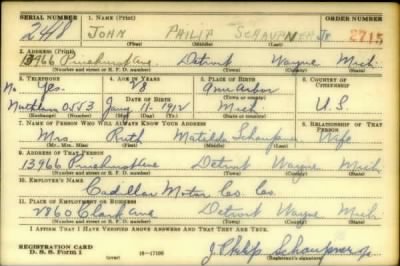 SERIAL NUMBER 1. NAME (Print) ORDER NUMBER
2418 JOHN PHILIP SCHAUPNER JR 2715
(First) (Middle) (Last)
2. ADDRESS (Print)
13966 Pinehurst Ave. Detroit Wayne Mich.
(Number and street or R. F. D. number) (Town) (County) (State)
3. TELEPHONE 4. AGE IN YEARS 5. PLACE OF BIRTH 6. COUNTRY OF CITIZENSHIP
No. Yes. 28 Ann Arbor
DATE OF BIRTH (Town or county)
0553 Jany. 11- 1912 Mich. U. S.
(Exchange) (Number) (Mo.) (Day) (Yr.) (State or country)
7. NAME OF PERSON WHO WILL ALWAYS KNOW YOUR ADDRESS 8. RELATIONSHIP OF THAT PERSON
Mrs. Ruth Matilda Schaupner Wife
(Mr., Mrs., Miss) (First) (Middle) (Last)
9. ADDRESS OF THAT PERSON
13966 Pinehurst Ave Detroit Wayne Mich.
(Number and street or R. F. D. number) (Town) (County) (State)
10. EMPLOYER'S NAME
Cadillac Motor Car Co.
11. PLACE OF EMPLOYMENT OR BUSINESS
2860 Clark Ave Detroit Wayne Mich.
(Number and street or R. F. D. number) (Town) (County) (State)
I AFFIRM THAT I HAVE VERIFIED ABOVE ANSWERS AND THAT THEY ARE TRUE.
REGISTRATION CARD
D. S. S. Form 1 16-17105 J. Philip Schaupner Jr.